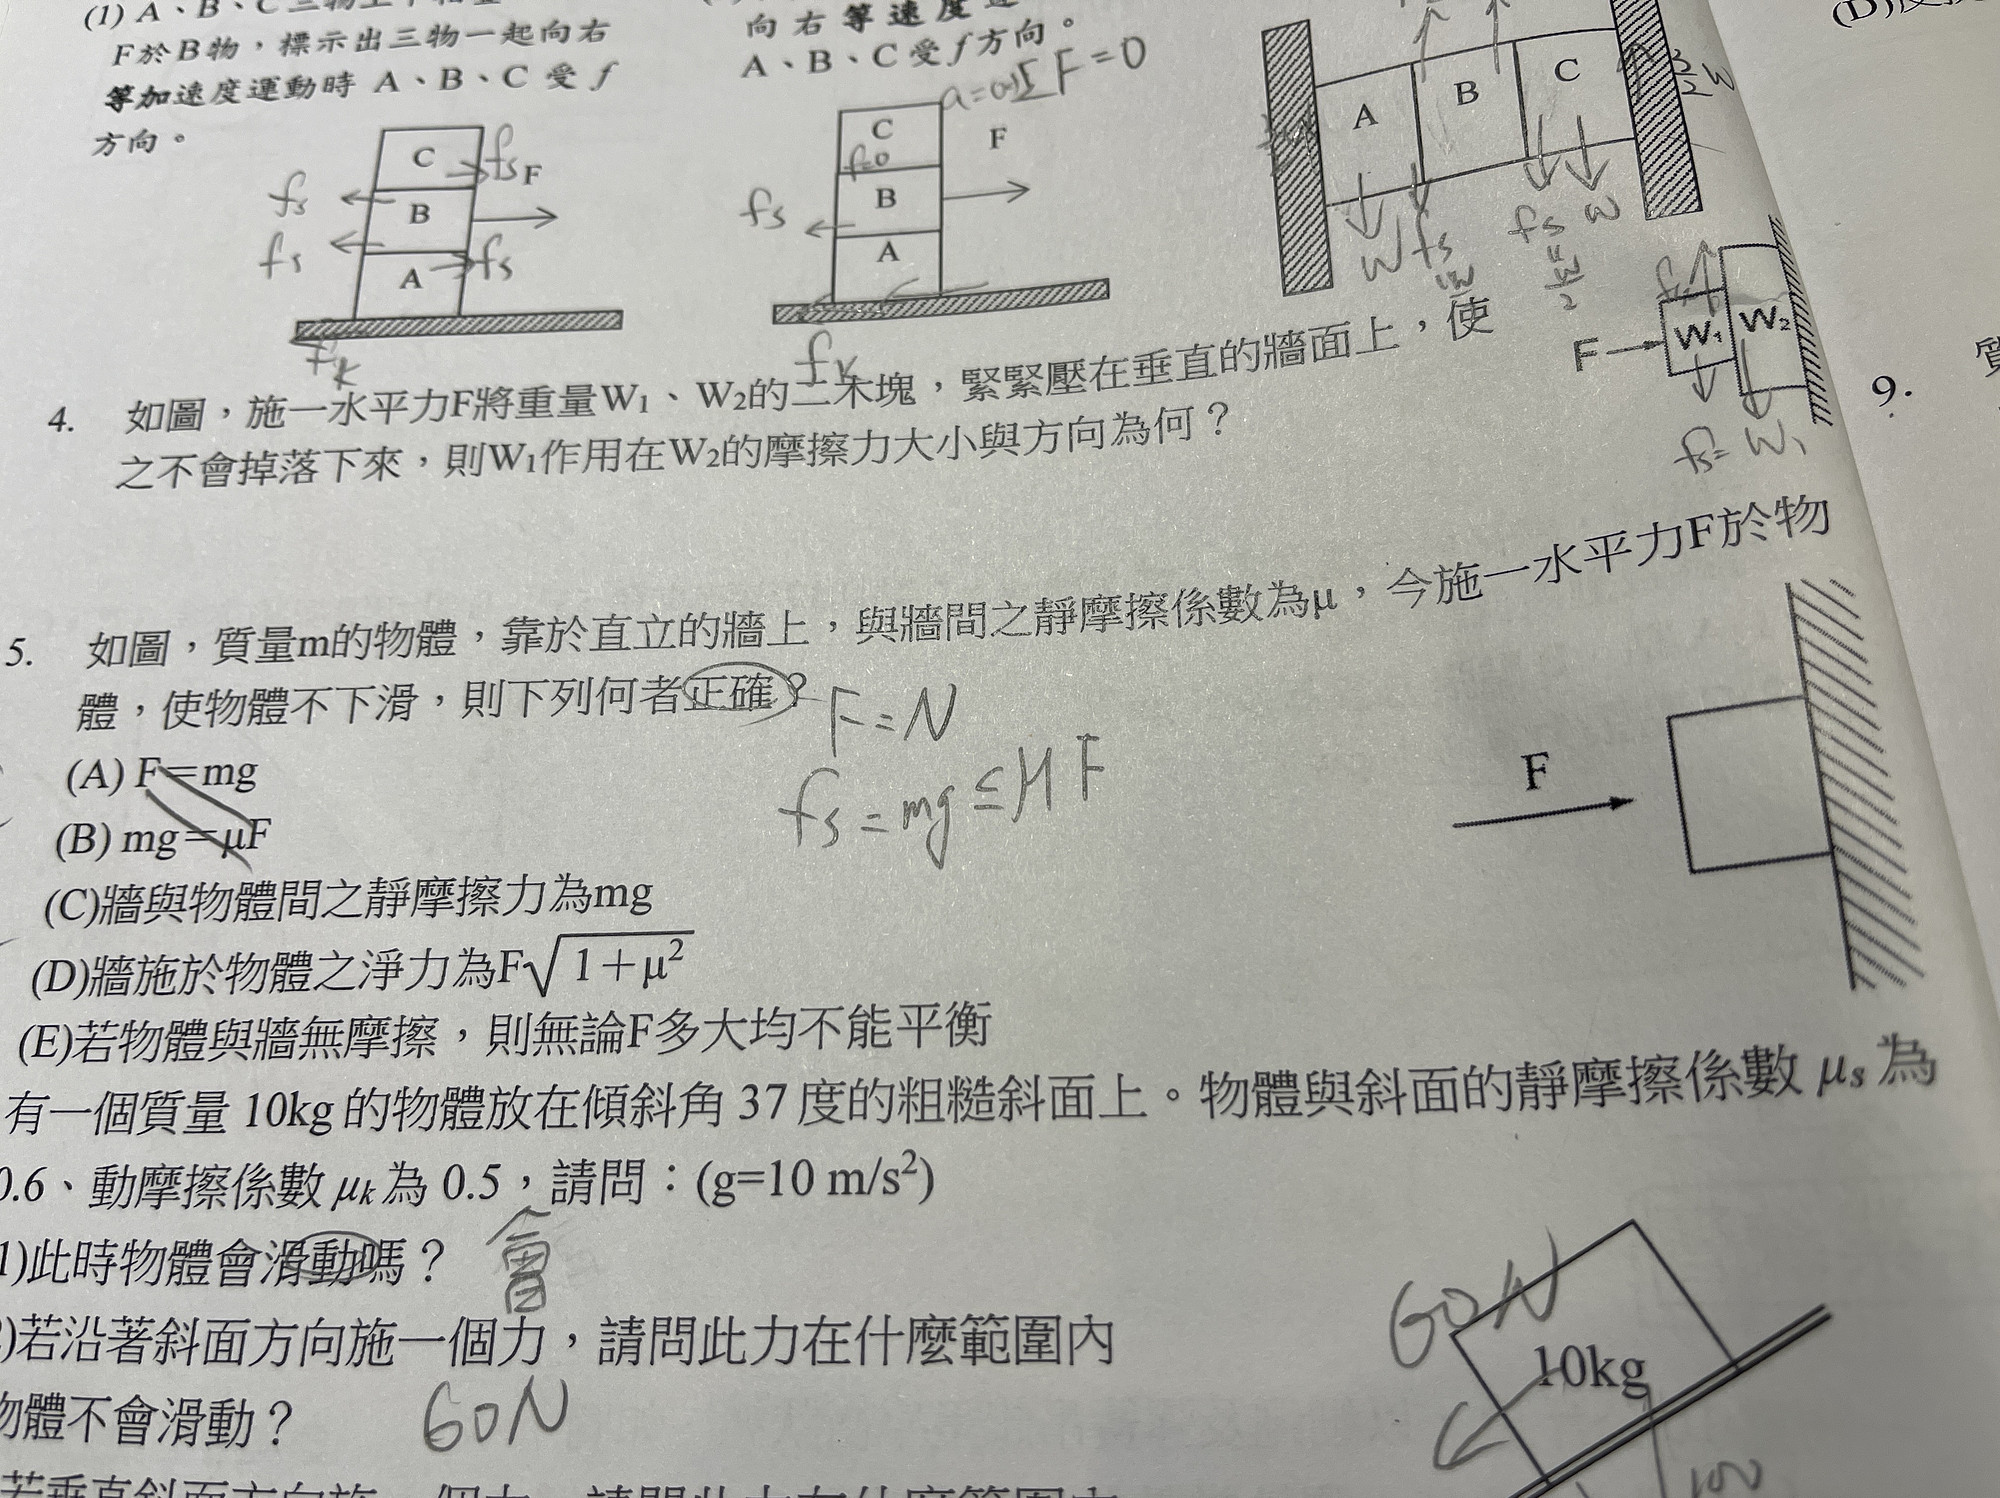 (1) A、B、C
F於B物，標示出三物一起向右
等加速度運動時 A、B、C 受 f
方向。
C
fs
F
fs
B
fs
A
fs
fk
向右等速度
A、B、C受f方向。
a=0 ΣF=0
C
f=0
F
B
fs
A
fk
A
B
C
3/2 W
W
fs
fs
W
W/2
4. 如圖，施一水平力F將重量W₁、W₂的二木塊，緊緊壓在垂直的牆面上，使
之不會掉落下來，則W₁作用在W₂的摩擦力大小與方向為何？
fs
F
W₁
W₂
fs=W₁
9.
(D)
5. 如圖，質量m的物體，靠於直立的牆上，與牆間之靜摩擦係數為μ，今施一水平力F於物
體，使物體不下滑，則下列何者正確？
F=N
fs=mg≤μF
(A) F=mg
(B) mg=μF
(C)牆與物體間之靜摩擦力為mg
(D)牆施於物體之淨力為F√1+μ²
(E)若物體與牆無摩擦，則無論F多大均不能平衡
F
有一個質量 10kg 的物體放在傾斜角 37 度的粗糙斜面上。物體與斜面的靜摩擦係數 μs 為
0.6、動摩擦係數 μk 為 0.5，請問：(g=10 m/s²)
1)此時物體會滑動嗎？ 會
)若沿著斜面方向施一個力，請問此力在什麼範圍內
物體不會滑動？ 60N
60N
10kg
100
若垂直斜面方向施一個力，請問此力在什麼範圍內